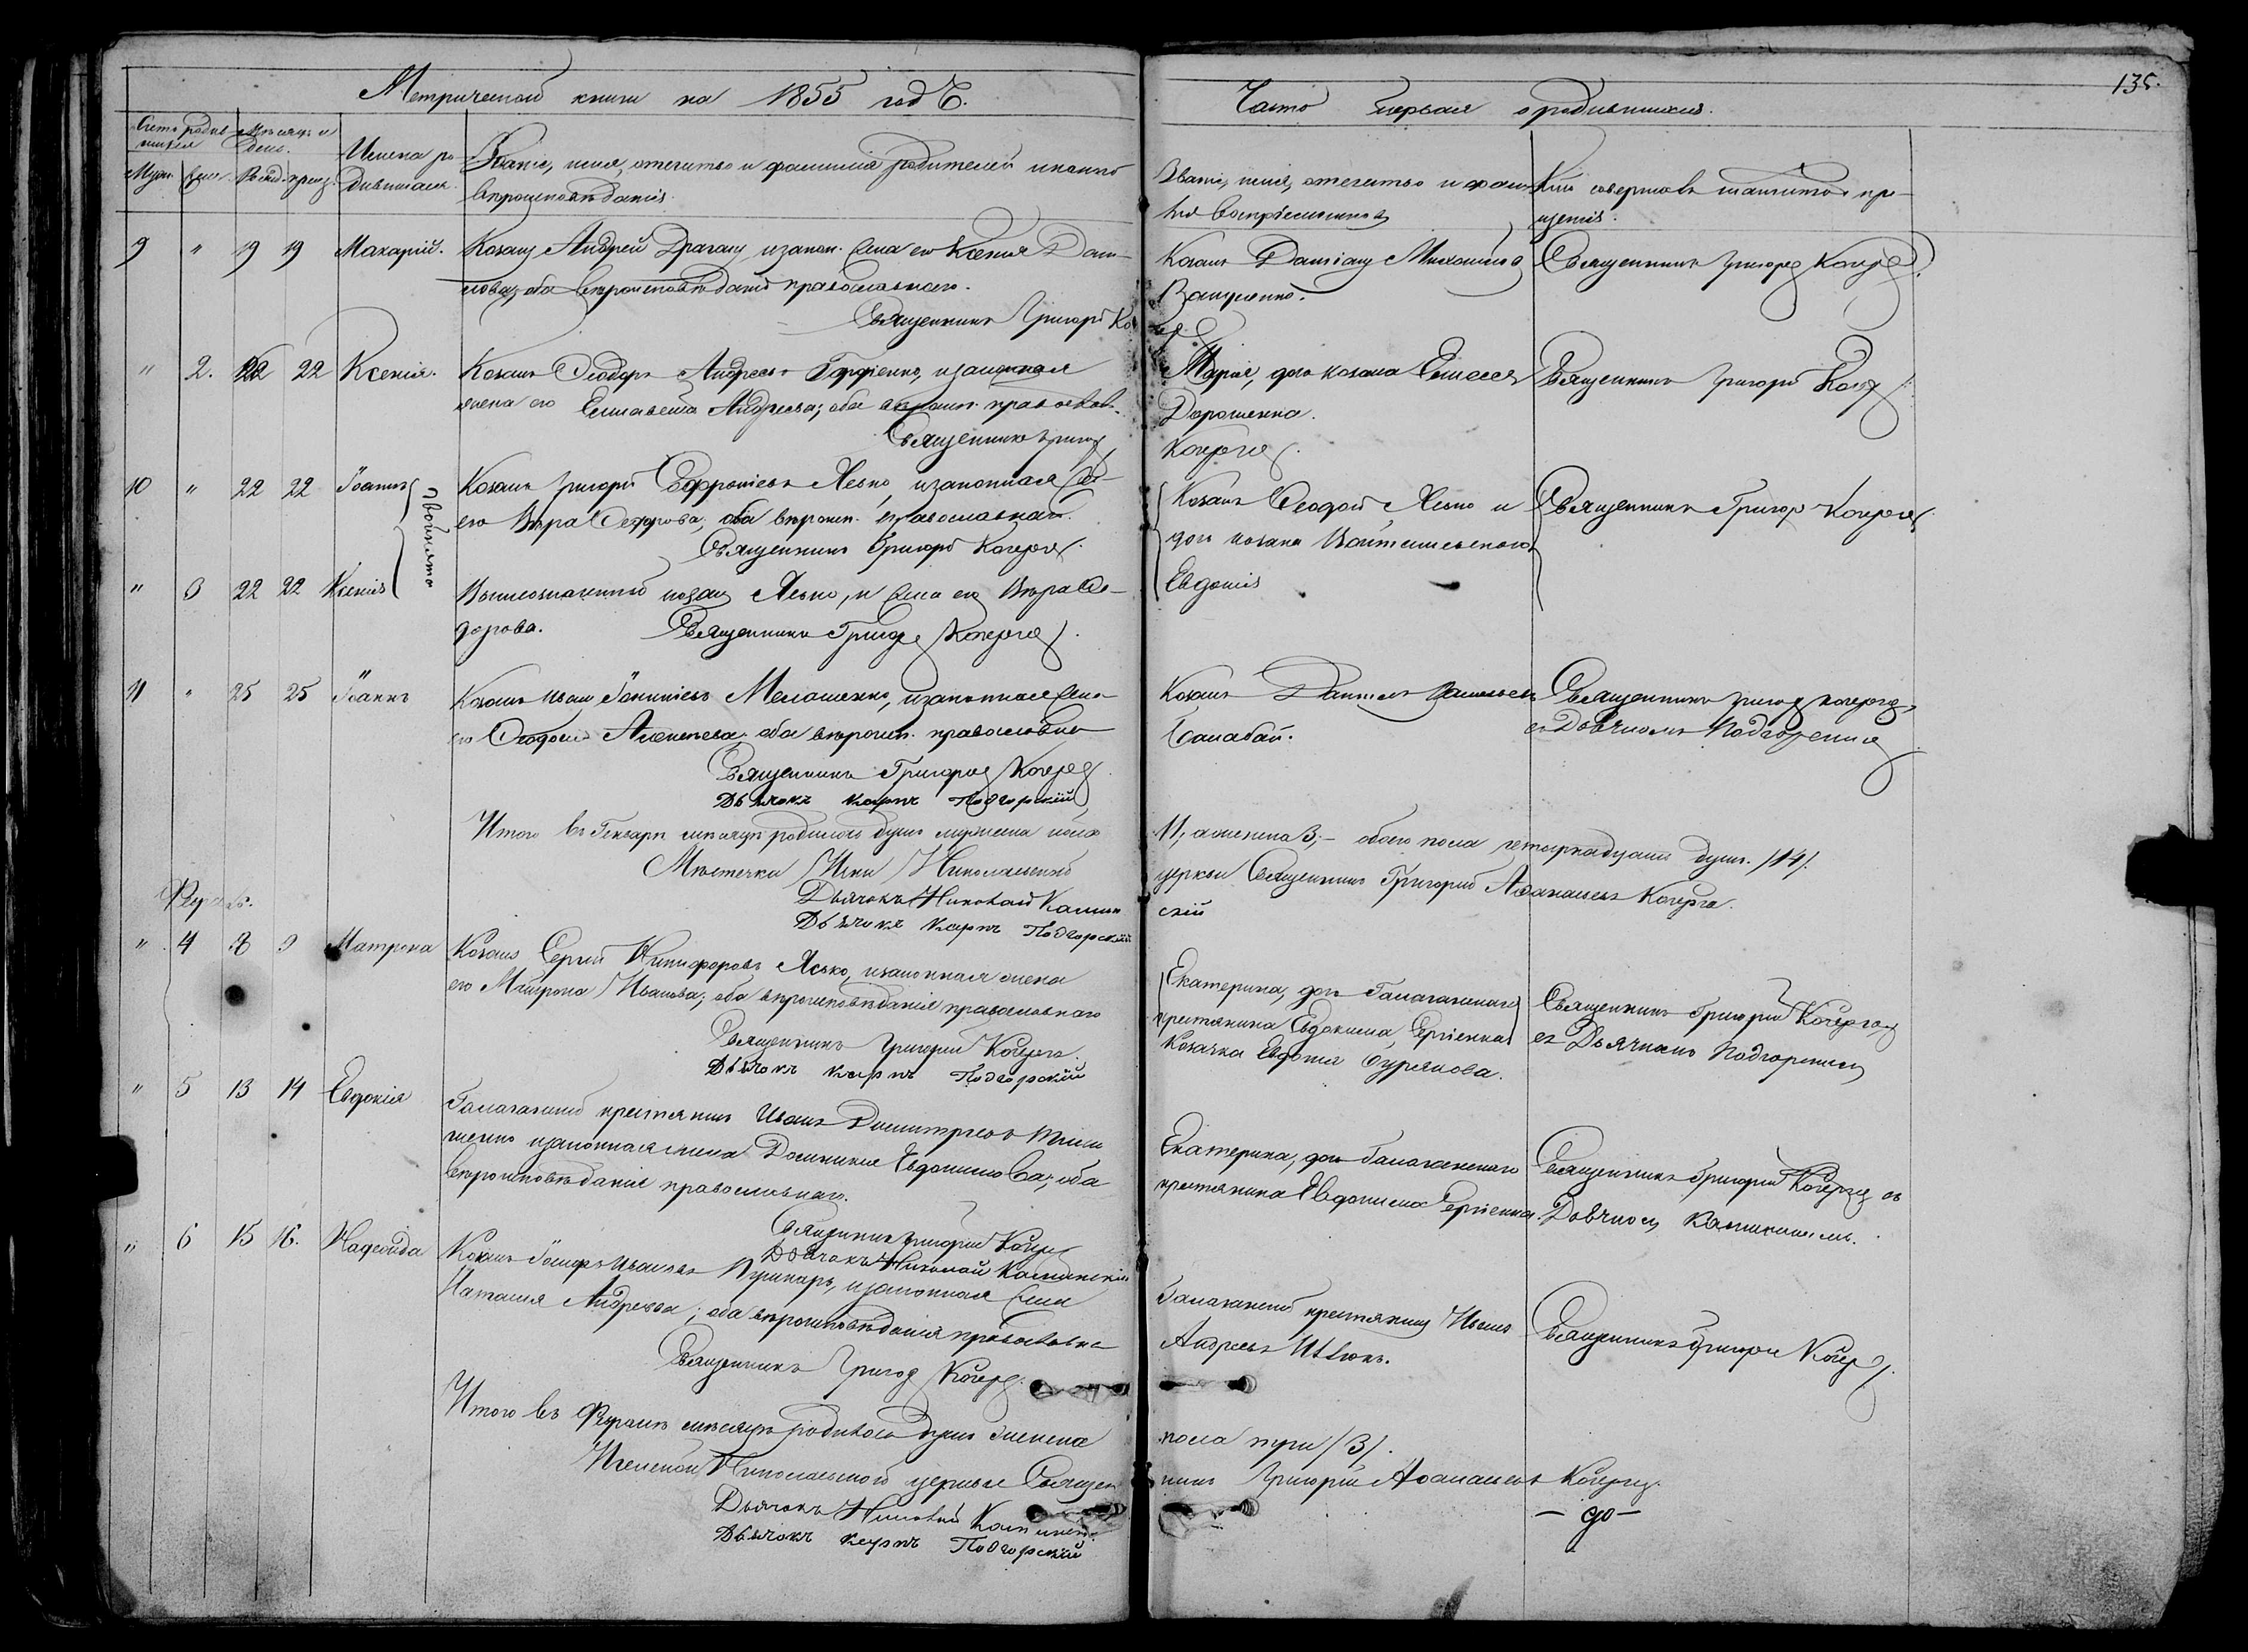 Метрической книги на 1855 годъ.
Часть первая о родившихся.
135.
Счетъ родив-
шихся
Мѣсяцъ и
день.
Муж. Жен. Рожд. крещ.
Имена ро
дившихся.
Званіе, имя, отечество и фамилія родителей и какого
вѣроисповѣданія.
Званіе, имя, отечество и фами-
лія воспріемниковъ
Кто совершалъ таинство кре-
щенія.
9 " 19 19 Макарій. Козакъ Андрей Драгану, и закон. жена его Ксенія Дани-
лова, оба вѣроисповѣданія православнаго.
Священникъ Григорій Ко
Козакъ Даміанъ Михайловъ
Ващенко.
Священникъ Григорій Кочерга
" 2. 22 22 Ксенія. Козакъ Ѳеодоръ Андреевъ, и законная
жена его Елисавета Андреева; оба вѣроисп. православ.
Священникъ Григорій
Марія, дочь козака Елисея
Дорошенка.
Кочерга.
Священникъ Григорій Кочерга
10 " 22 22 Іоаннъ двойнята
Козакъ Григорій Евфроніевъ Лесько, и законная жена
его Вѣра Ѳеодорова, оба вѣроисп. православнаго.
Священникъ Григорій Кочерга.
Козакъ Ѳеодоръ Лесько и
дочь козака
Евдокія
Священникъ Григорій Кочерга
" 3 22 22 Ксенія
Вышеозначенный козакъ Лесько, и жена его Вѣра Ѳео-
дорова. Священникъ Григорій Кочерга.
11 " 25 25 Іоаннъ Козакъ Иванъ Мелашенко, и законная жена
его Ѳеодосія Алексѣева, оба вѣроисп. православнаго
Священникъ Григорій Кочерга
Дьячокъ Карпъ Подгорскій
Козакъ Даніилъ Васильевъ
Балабай.
Священникъ Григорій Кочерга
съ Дьячкомъ Подгорскимъ
Итого въ Генварѣ мѣсяцѣ родилось душъ мужеска пола
11, а женска 3; – обоего пола четырнадцать душъ. /14/.
Мѣстечка Ични Николаевской
церкви Священникъ Григорій Аѳанасьевъ Кочерга.
Дьячокъ Николай Камин
скій
Дьячокъ Карпъ Подгорскій
Февраль.
" 4 8 9 Матрона Козакъ Сергій Никифоровъ Лесько, и законная жена
его Матрона Иванова; оба вѣроисповѣданія православнаго
Священникъ Григорій Кочерга.
Дьячокъ Карпъ Подгорскій
Екатерина, дочь Галагановскаго
крестьянина Евдокима Сергіенка
Козачка Евфимія Бурякова.
Священникъ Григорій Кочерга
съ Дьячкомъ Подгорскимъ
" 5 13 14 Евдокія Галагановскій крестьянинъ Иванъ Димитріевъ
и законная жена Домникія Евдокимова; оба
вѣроисповѣданія православнаго.
Священникъ Григорій Кочерга
Дьячокъ Николай Каминскій
Екатерина, дочь Галагановскаго
крестьянина Евдокима Сергіенка
Священникъ Григорій Кочерга съ
Дьячкомъ Каминскимъ.
" 6 15 16. Надежда Козакъ Іосифъ Ивановъ Пушкарь, и законная жена
Наталія Андреева; оба вѣроисповѣданія православна
Священникъ Григорій Кочерга.
Галагановскій крестьянинъ Иванъ
Андреевъ Ивлюкъ.
Священникъ Григорій Кочерга.
Итого въ Февралѣ мѣсяцѣ родилось душъ женска
пола три /3/.
Иченской Николаевской церкви Священ
никъ Григорій Аѳанасьевъ Кочерга.
Дьячокъ Николай Каминскій
Дьячокъ Карпъ Подгорскій